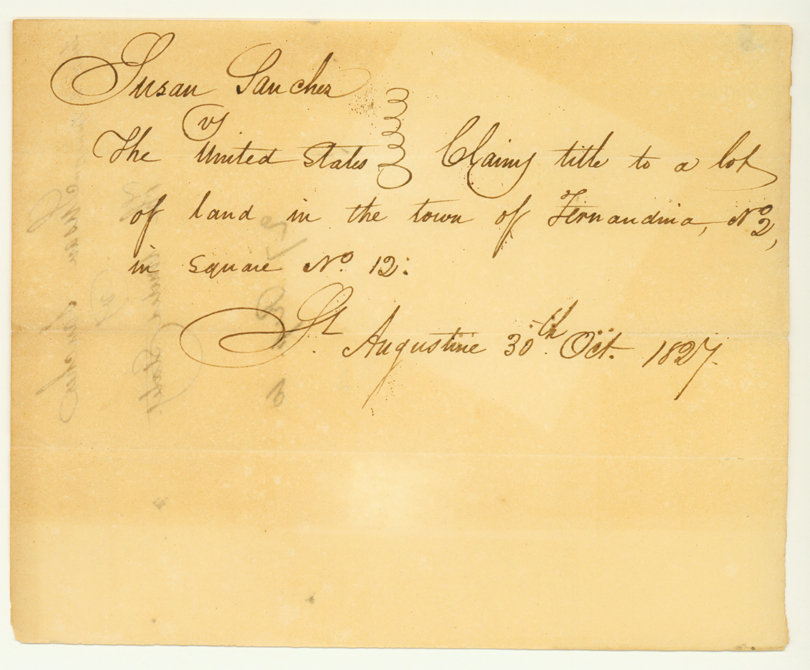 Susan Sanchez
vs
The United States } Claims title to a lot
of land in the town of Fernandina, No. 2,
in square No. 12:
St. Augustine 30th Oct. 1827.